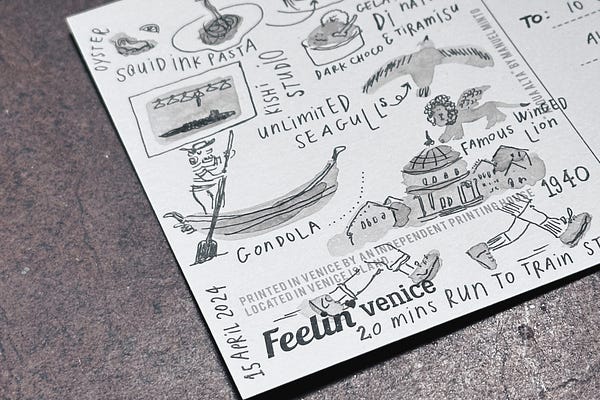 OYSTER
SQUID INK PASTA
GELA
DI NAT
DARK CHOCO & TIRAMISU
KISHI
STUDIO
UNLIMITED
SEAGULLS
FAMOUS WINGED
LION
TO: 10
GONDOLA
1940
PRINTED IN VENICE BY AN INDEPENDENT PRINTING HOUSE
LOCATED IN VENICE ISLAND
Feelin' venice
20 MINS RUN TO TRAIN ST
15 APRIL 2024
BY MANUEL MINTO